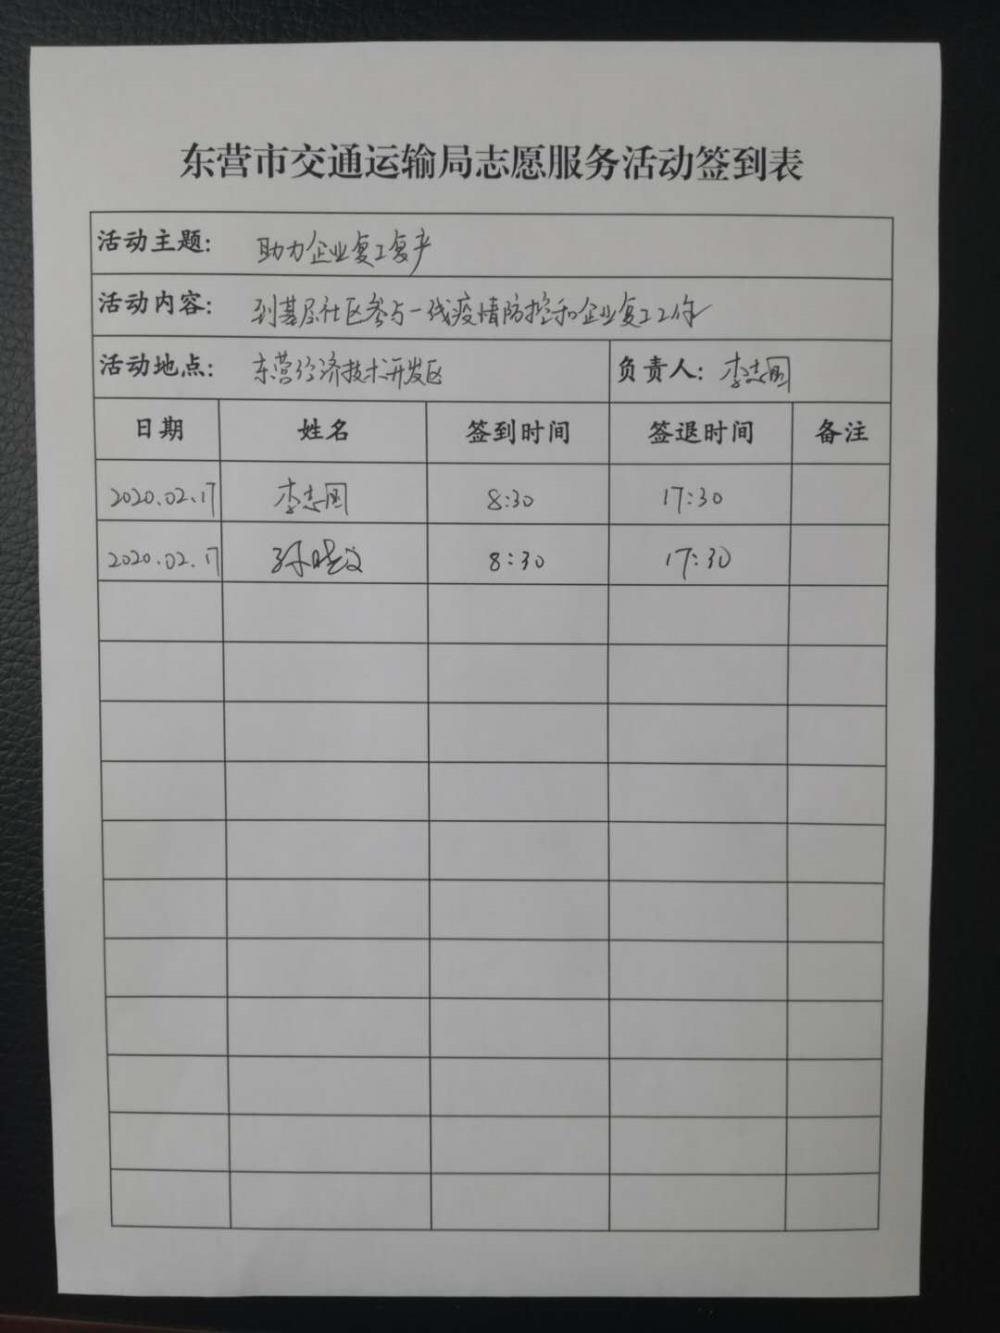 东营市交通运输局志愿服务活动签到表
活动主题: 助力企业复工复产
活动内容: 到基层社区参与一线疫情防控和企业复工工作
活动地点: 东营经济技术开发区 负责人: 李志国
日期 姓名 签到时间 签退时间 备注
2020.02.17 李志国 8:30 17:30
2020.02.17 孙晓文 8:30 17:30